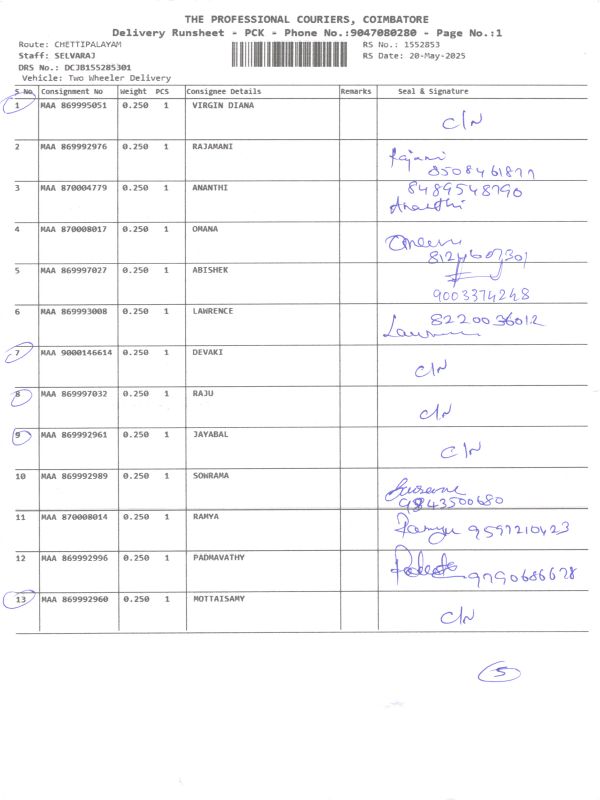 THE PROFESSIONAL COURIERS, COIMBATORE
Delivery Runsheet - PCK - Phone No.:9047080280 - Page No.:1
Route: CHETTIPALAYAM RS No.: 1552853
Staff: SELVARAJ RS Date: 20-May-2025
DRS No.: DCJB155285301
Vehicle: Two Wheeler Delivery
S No. Consignment No Weight PCS Consignee Details Remarks Seal & Signature
1 MAA 869995051 0.250 1 VIRGIN DIANA
C/N
2 MAA 869992976 0.250 1 RAJAMANI
Rajani
8508461877
3 MAA 870004779 0.250 1 ANANTHI 8489548790
Ananthi
4 MAA 870008017 0.250 1 OMANA
8124607301
5 MAA 869997027 0.250 1 ABISHEK
9003374248
6 MAA 869993008 0.250 1 LAWRENCE 8220036012
7 MAA 9000146614 0.250 1 DEVAKI
C/N
8 MAA 869997032 0.250 1 RAJU
C/N
9 MAA 869992961 0.250 1 JAYABAL
C/N
10 MAA 869992989 0.250 1 SOWRAMA
9843500680
11 MAA 870008014 0.250 1 RAMYA
Ramya 9597210423
12 MAA 869992996 0.250 1 PADMAVATHY
9790686678
13 MAA 869992960 0.250 1 MOTTAISAMY
C/N
5